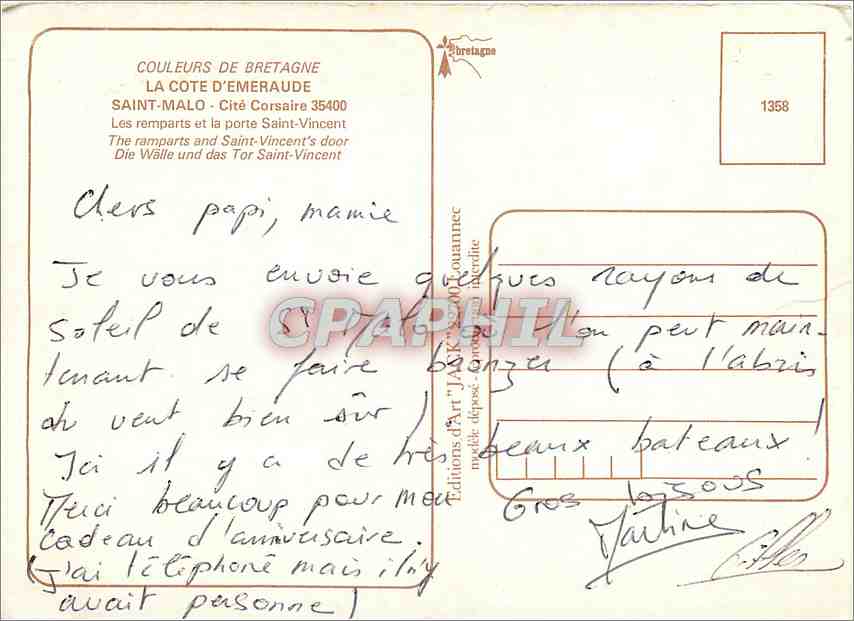 COULEURS DE BRETAGNE
LA COTE D'EMERAUDE
SAINT-MALO - Cité Corsaire 35400
Les remparts et la porte Saint-Vincent
The ramparts and Saint-Vincent's door
Die Wälle und das Tor Saint-Vincent
bretagne
1358
Chers papi, mamie
Je vous envoie quelques rayons de
soleil de St Malo où l'on peut main-
tenant se faire bronzer (à l'abris
du vent bien sûr)
Ici il y a de très beaux bateaux!
Merci beaucoup pour mon
cadeau d'anniversaire.
(J'ai téléphoné mais il n'y
avait personne)
Gros bisous
Martine
Gilles
Editions d'Art "JACK" Louannec
modèle déposé - interdite
CPAPHIL